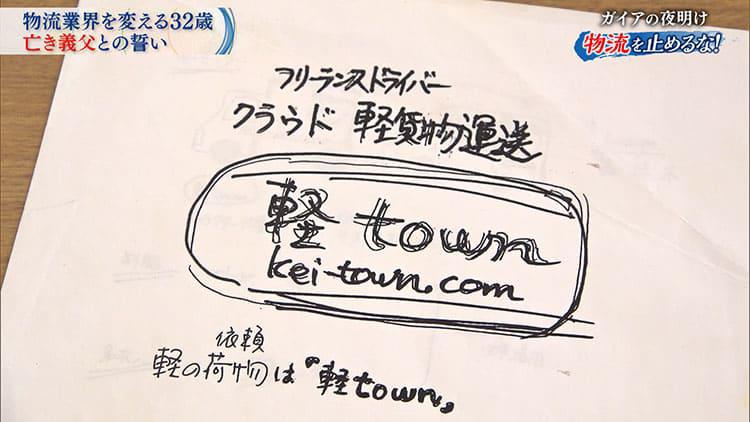 物流業界を変える32歳
亡き義父との誓い
ガイアの夜明け
物流を止めるな!
フリーランスドライバー
クラウド 軽貨物運送
軽 town
kei-town.com
依頼
軽の荷物は『軽town』